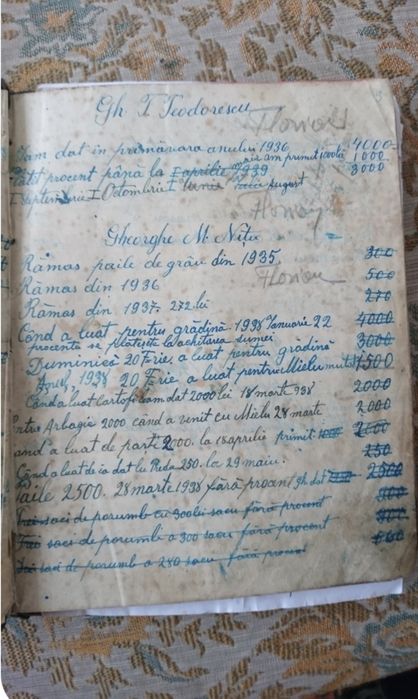 Gh T. Teodorescu
Florica
I am dat în primăvara anului 1936 4000
mai am primit 1000
procent până la I aprilie 1939 3000
I Septembrie I Octombrie I Iunie August
Gheorghe M. Nițu
Rămas paile de grâu din 1935, 300
Rămas din 1936 500
Rămas din 1937. 272 lei 270
Când a luat pentru grădină 1938 Ianuarie 22 4000
procente se plătește la achitarea sumei 3000
Duminică 20 Frie. a luat pentru grădină
Anul, 1938 20 Frie a luat pentru Mielu 1500
Când a luat Cartofi iam dat 2000 lei 18 marte 938 2000
Arbagic 2000 când a venit cu Mielu 28 marte 2000
când a luat de parti 2000. la 15 aprilie primit 2000
Când a luat de io dat lui Radu 250. la 29 maiu. 250
Paile 2500. 28 marte 1938 fără procent 2500
Trei saci de porumb cu 300 lei sacu fără procent 900
Trei saci de porumb a 300 sacu fără procent 900
Trei saci de porumb a 280 sacu fără procent 860